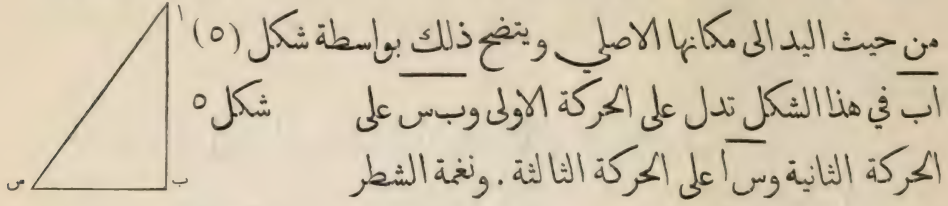 من حيث اليد الى مكانها الاصلي ويتضح ذلك بواسطة شكل (٥)
اب في هذا الشكل تدل على الحركة الاولى وب س على
شكل ٥
الحركة الثانية وس ا على الحركة الثالثة . ونغمة الشطر
ا
ب
س